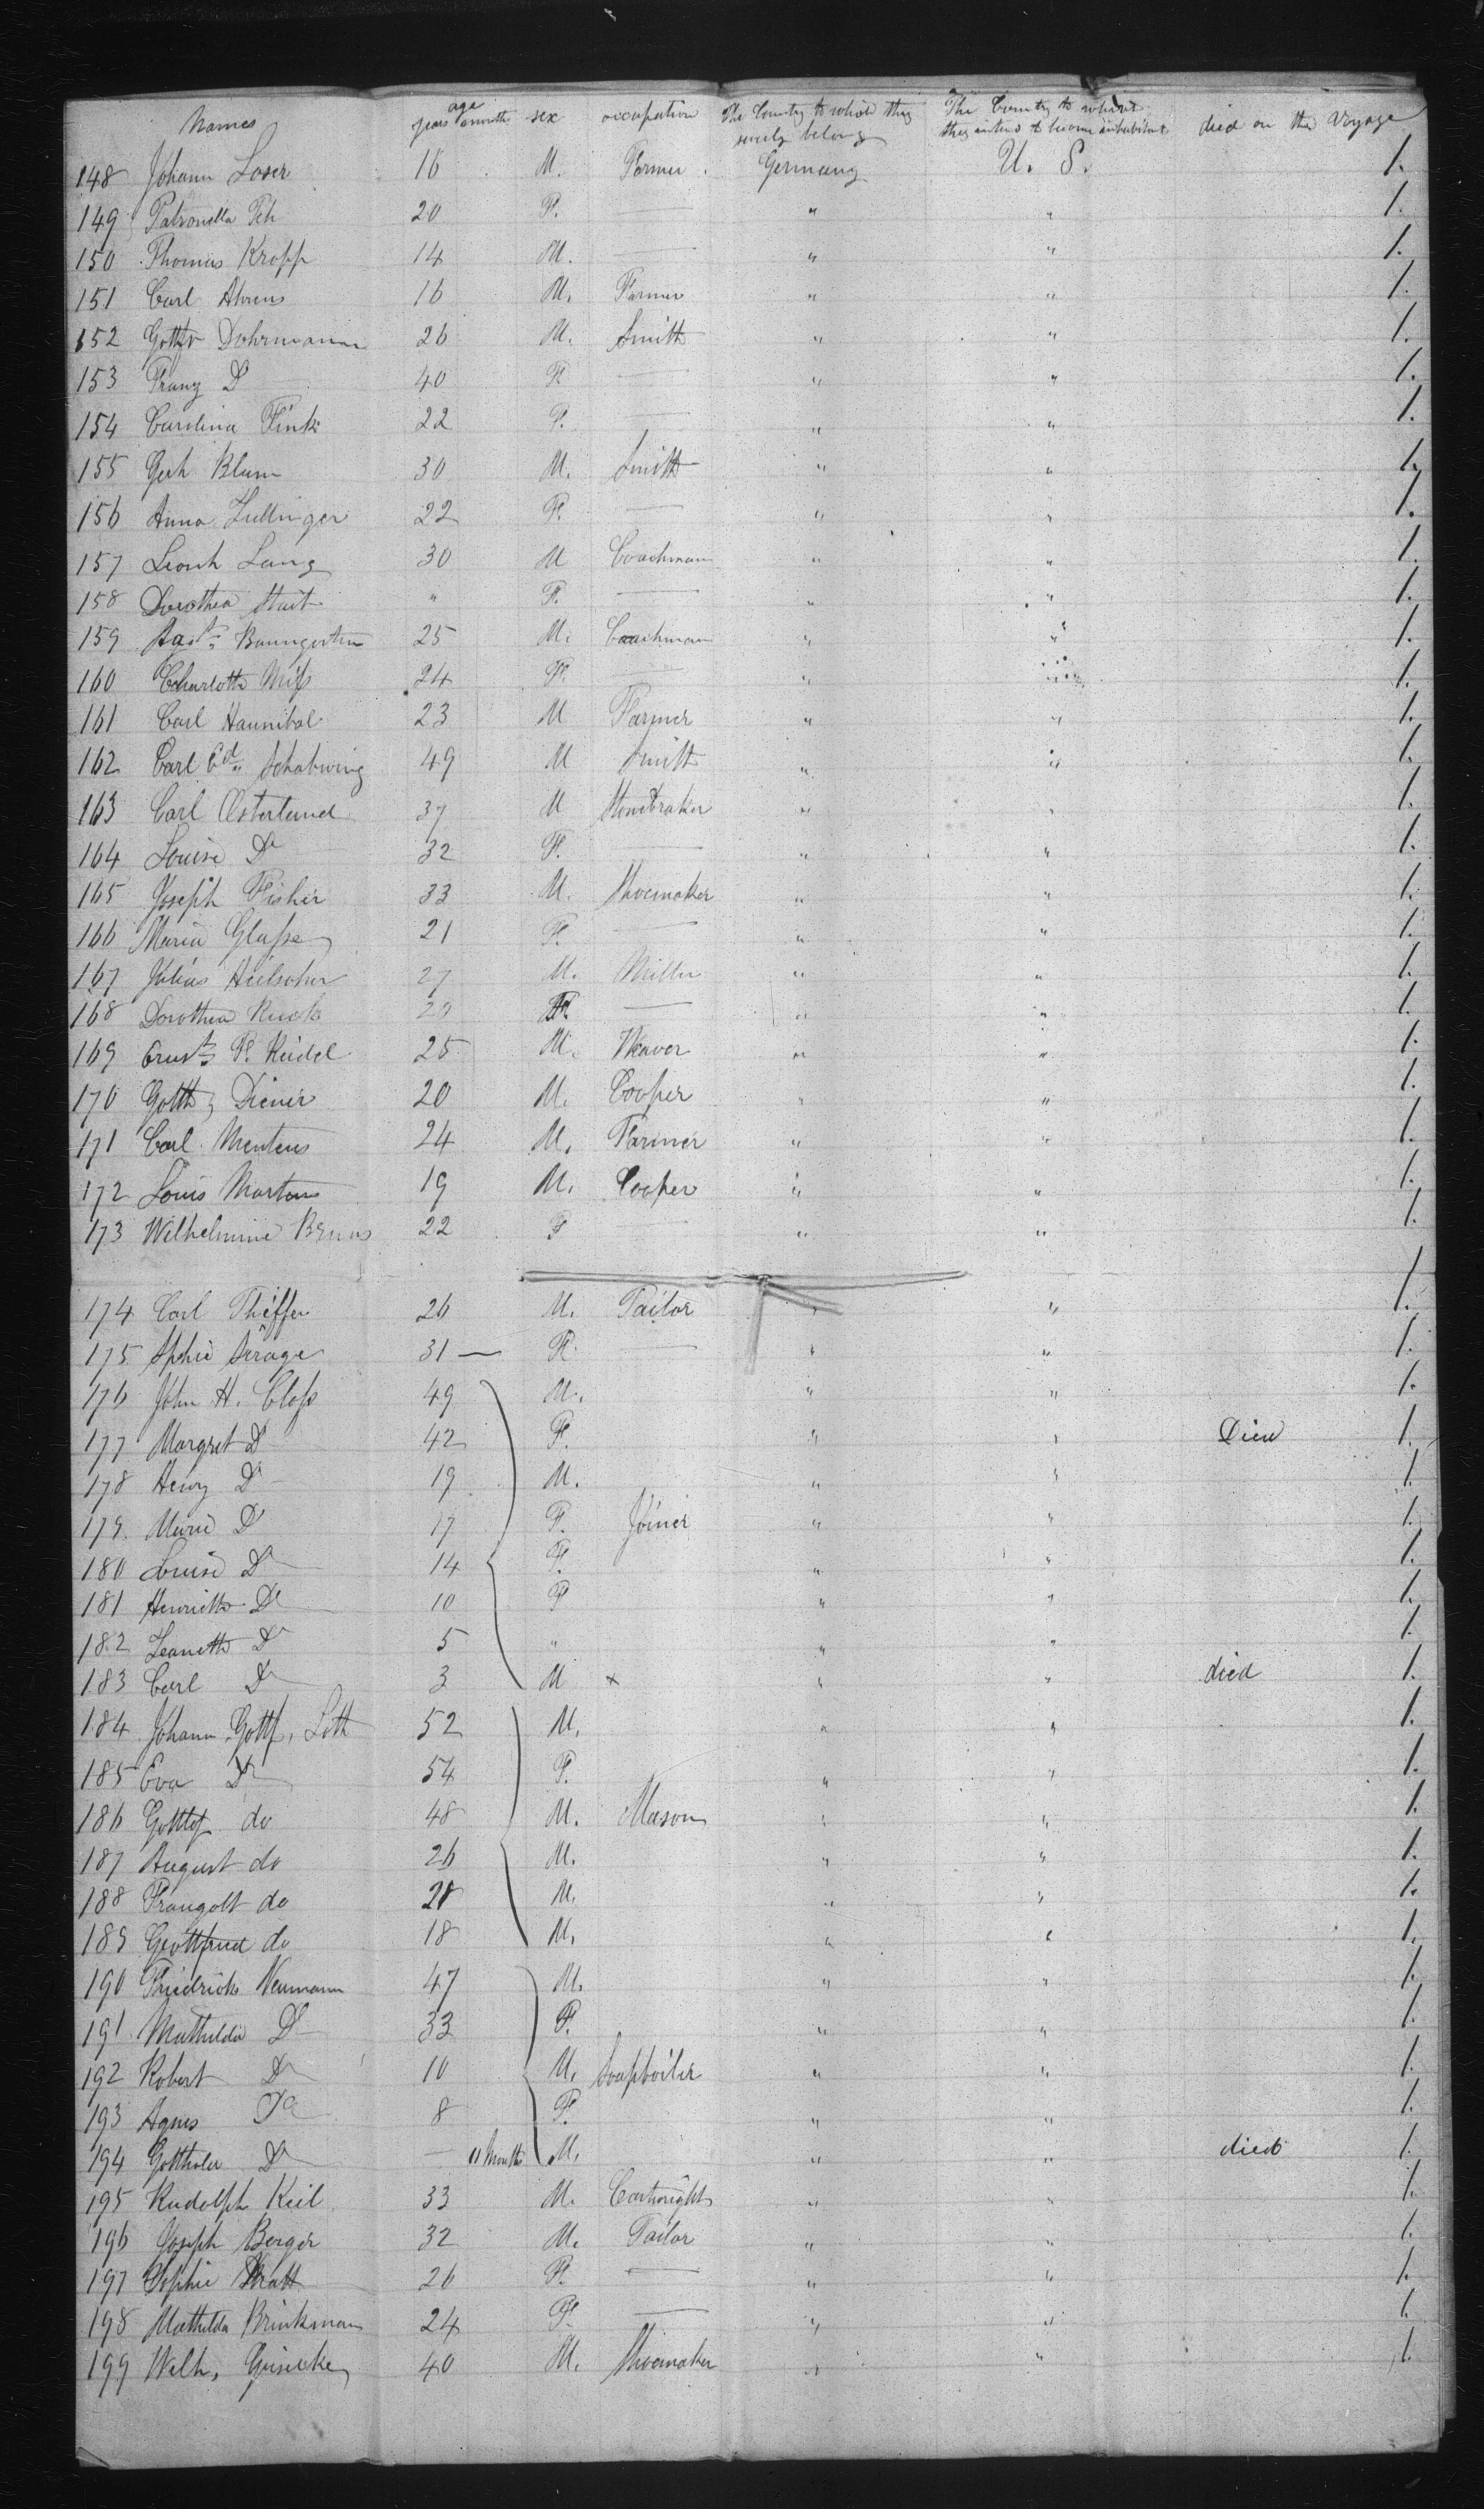 Names age years months sex occupation The Country to which they severely belong The Country to which they intend to become inhabitant died on the Voyage
148 Johann Loser 16 M. Farmer. Germany U. S. 1.
149 Petronella Feh 20 F. — " " 1.
150 Thomas Kropp 14 M. — " " 1.
151 Carl Ahrens 16 M. Farmer " " 1.
152 Gottfr Dohrmann 26 M. Smith " " 1.
153 Franz Do 40 F. — " " 1.
154 Carolina Fink 22 F. — " " 1.
155 Gerh Blum 30 M. Smith " " 1.
156 Anna Zullinger 22 F. — " " 1.
157 Leonh Lang 30 M Coachman " " 1.
158 Dorothea Stait " F. — " " 1.
159 Aust. Baumgarten 25 M. Coachman " " 1.
160 Charlotte Miss 24 F. — " " 1.
161 Carl Hannibal 23 M Farmer " " 1.
162 Carl Ed. Schabwing 49 M Smith " " 1.
163 Carl Osterlund 37 M Stonebraker " " 1.
164 Louise Do 32 F. — " " 1.
165 Joseph Fisher 33 M. Shoemaker " " 1.
166 Maria Glasse 21 F. — " " 1.
167 Julius 27 M. Miller " " 1.
168 Dorothea Ruck 20 F. — " " 1.
169 Ernst F. Reidel 25 M. Weaver " " 1.
170 Gotth. Diener 20 M. Cooper " " 1.
171 Carl Mentens 24 M. Farmer " " 1.
172 Louis Martens 19 M. Cooper " " 1.
173 Wilhelmine Bruns 22 F — " " 1.
174 Carl Thiffer 26 M. Tailor " " 1.
175 Sophie Serage 31 — F. — " " 1.
176 John H. Closs 49 M. " " 1.
177 Margret Do 42 F. " " Died 1.
178 Henry Do 19 M. " " 1.
179. Marie Do 17 F. Joiner " " 1.
180 Louise Do 14 F. " " 1.
181 Henriette Do 10 F " " 1.
182 Jeanette Do 5 " " " 1.
183 Carl Do 3 M x " " died 1.
184 Johann Gottf. Loth 52 M. " " 1.
185 Eva Do 54 F. " " 1.
186 Gottlof do 48 M. Mason " " 1.
187 August do 26 M. " " 1.
188 Traugott do 28 M. " " 1.
189 Geottfried do 18 M. " " 1.
190 Friedrich Neumann 47 M. " " 1.
191 Mathilda Do 33 F. " " 1.
192 Robert Do 10 M. Soapboiler " " 1.
193 Agnes Do 8 F. " " 1.
194 Gotthold Do — 11 Month M. " " died 1.
195 Rudolph Keil 33 M. Cartwright " " 1.
196 Joseph Berger 32 M. Tailor " " 1.
197 Sophie Stratt 26 F. — " " 1.
198 Mathilda Brinkman 24 F. — " " 1.
199 Wilh. Giesecke 40 M. Shoemaker " " 1.